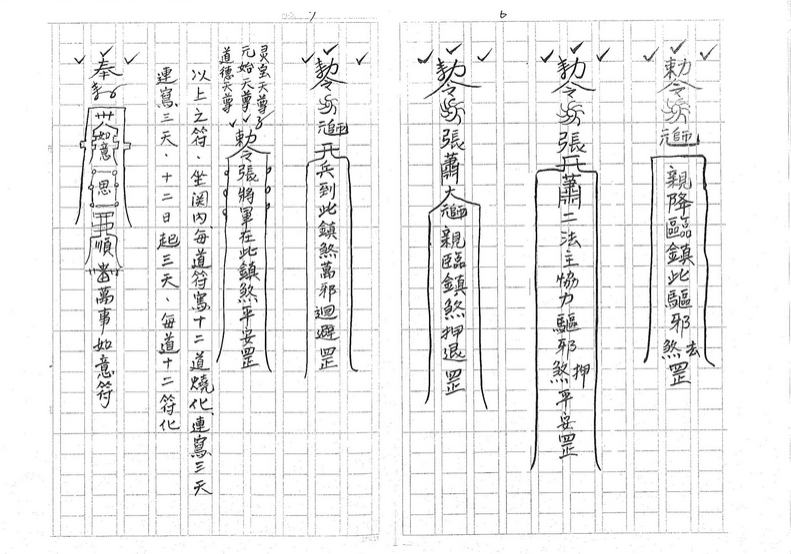 6
勅令元帥親降臨鎮此驅邪煞去罡
勅令張蕭二法主協力驅邪煞押平安罡
勅令張蕭大元帥親臨鎮煞押退罡
7
勅令元帥兵到此鎮煞萬邪迴避罡
灵宝天尊
元始天尊
道德天尊
勅令張將軍在此鎮煞平安罡
以上之符、坐関內、每道符寫十二道燒化、連寫三天
連寫三天、十二日起三天、每道十二符化
奉勅如意思順番萬事如意符